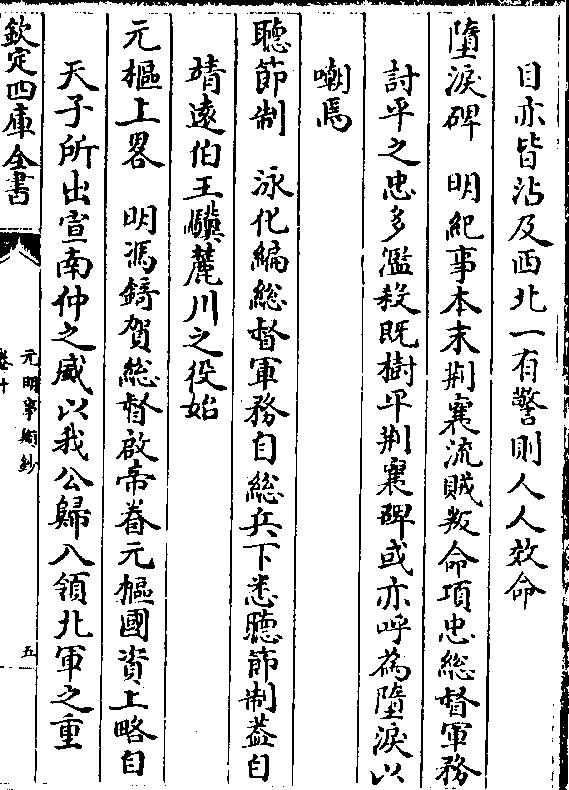 目亦皆沾及西北一有警則人人效命
墮淚碑　明紀事本末荆襄流賊叛命項忠總督軍務
討平之忠多濫殺既樹平荆襄碑或亦呼為墮淚以
嘲焉
聽節制　泳化編總督軍務自總兵下悉聽節制葢自
靖遠伯王驥麓川之役始
元樞上畧　明馮鑄賀總督啟帝眷元樞國資上略自
天子所出宣南仲之威以我公歸入領北軍之重
欽定四庫全書
元明事類鈔
卷十
五